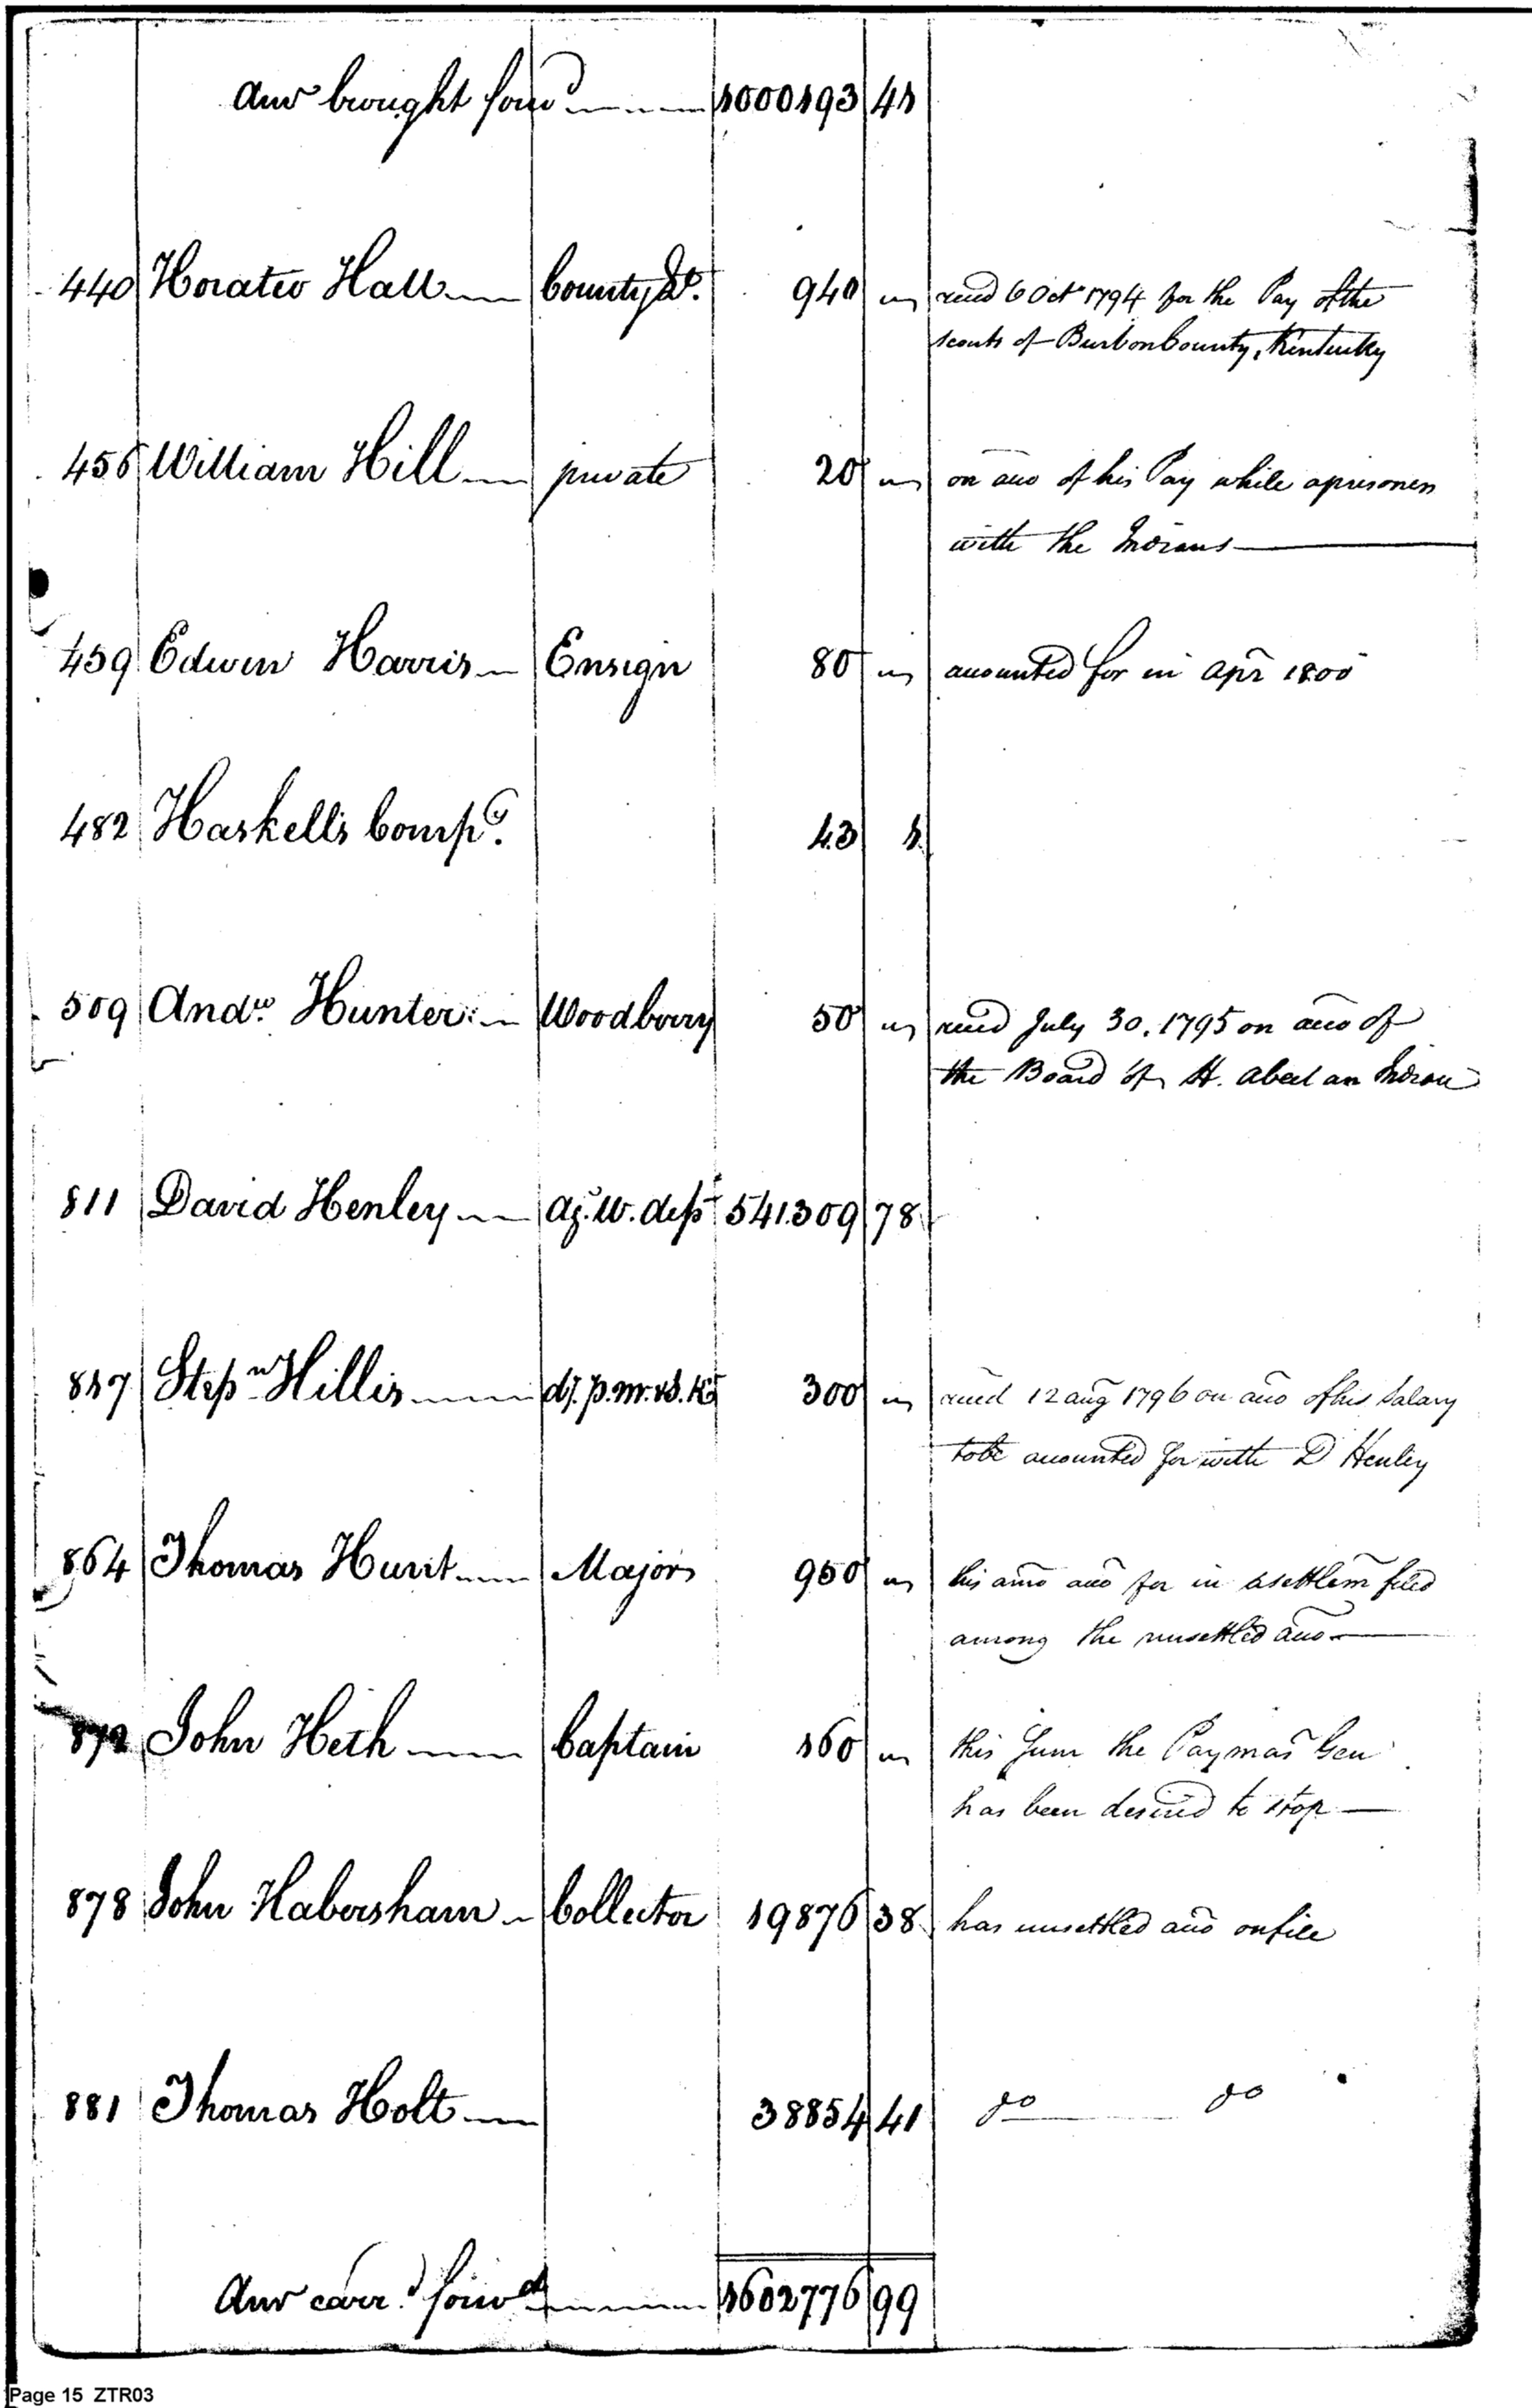 Amo brought forwd 1000193 41
440 Horatio Hall County Lt. 940 recd 6 Oct 1794 for the Pay of the
scouts of Burbon County, Kentucky
456 William Hill private 20 on acco of his Pay while a prisoner
with the Indians
459 Edwin Harris Ensign 80 accounted for in Apr 1800
482 Haskell's Compy. 43 1
509 Andw. Hunter Woodberry 50 recd July 30. 1795 on acco of
the Board of H. Abeel an Indian
811 David Henley Ag. W. dept 541309 78
817 Stepn Hillis 300 recd 12 Aug 1796 on acco of his Salary
to be accounted for with D Henley
864 Thomas Hunt Major 950 his amo acco for in a settlem filed
among the unsettled acco
872 John Heth Captain 160 this Sum the Paymas Gen
has been desired to stop
878 John Habersham Collector 19876 38 has unsettled acco on file
881 Thomas Holt 38854 41 do do
Amo carrd. forwd 1602776 99
Page 15 ZTR03